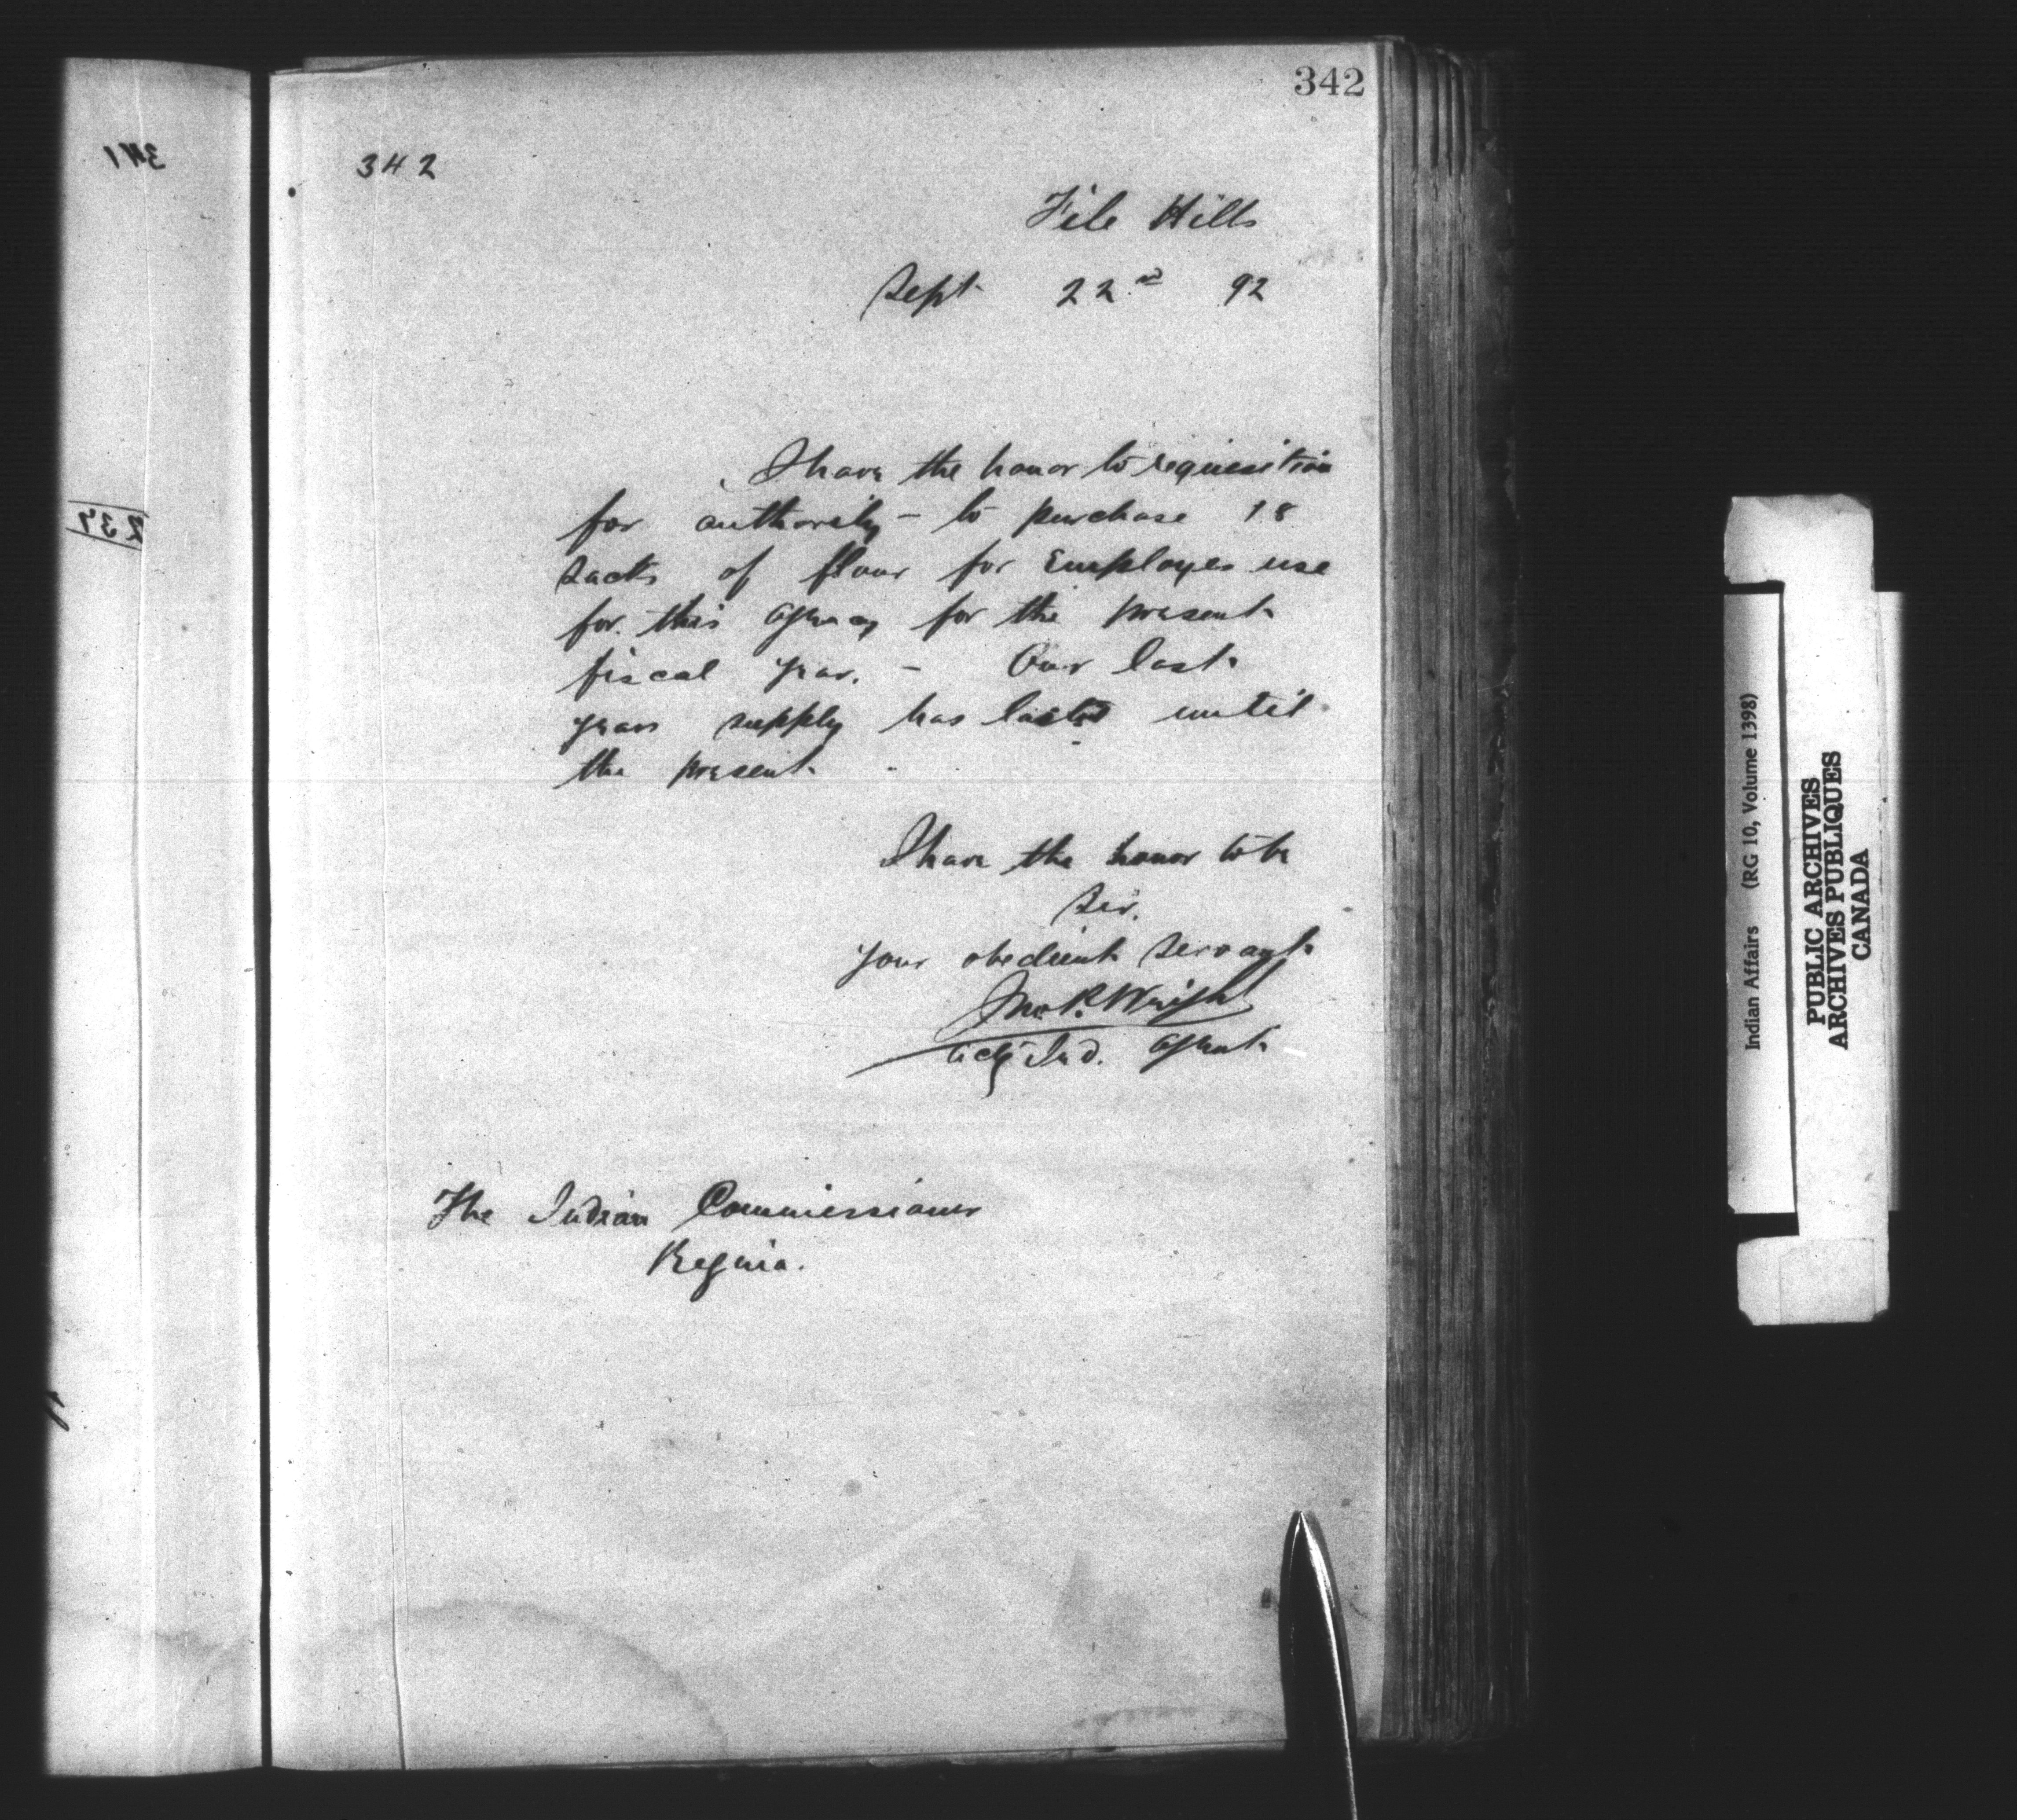 342
342
File Hills
Sept 22nd 92
I have the honor to requisition
for authority - to purchase 18
sacks of flour for Employes use
for this agency for the present
fiscal year. - Our last
years supply has lasted until
the present
I have the honor to be
Sir.
Your obedient servant
Jno P. Wright
Actg Ind. Agent
The Indian Commissioner
Regina.
341
237
Indian Affairs (RG 10, Volume 1398)
PUBLIC ARCHIVES
ARCHIVES PUBLIQUES
CANADA